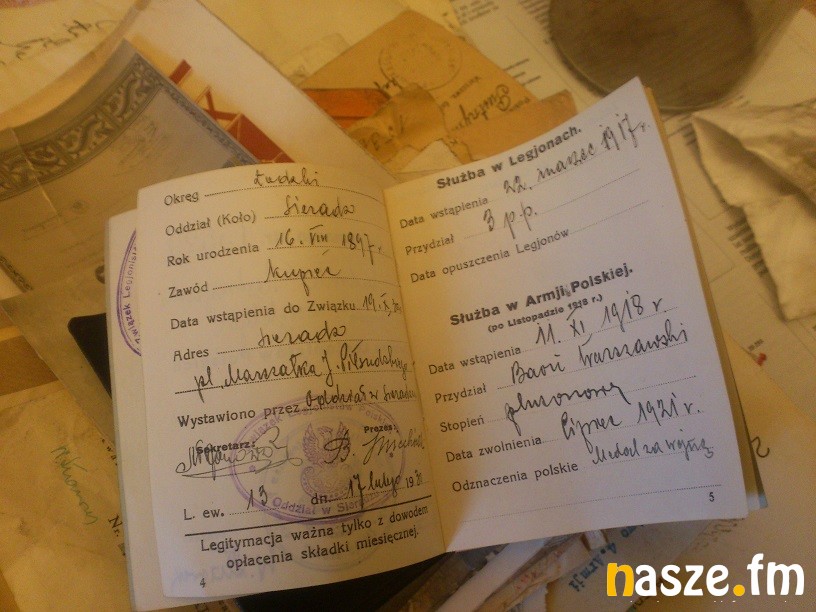 Okręg Łódzki
Oddział (Koło) Sieradz
Rok urodzenia 16. VIII 1897 r.
Zawód Kupiec
Data wstąpienia do Związku 19. X.
Adres Sieradz
pl. Marszałka J. Piłsudskiego
Wystawiono przez Oddział w Sieradzu
Sekretarz: Prezes:
Związek Legionistów Polskich
Oddział w Sieradzu
L. ew. 13 dn. 17 lutego 193
Legitymacja ważna tylko z dowodem
opłacenia składki miesięcznej.
4
Służba w Legjonach.
Data wstąpienia 22. marzec 1917 r.
Przydział 3 p.p.
Data opuszczenia Legjonów
Służba w Armji Polskiej.
(po Listopadzie 1918 r.)
Data wstąpienia 11. XI 1918 r.
Przydział Baon Warszawski
Stopień plutonowy
Data zwolnienia Lipiec 1921 r.
Odznaczenia polskie Medal za wojnę
5
nasze.fm